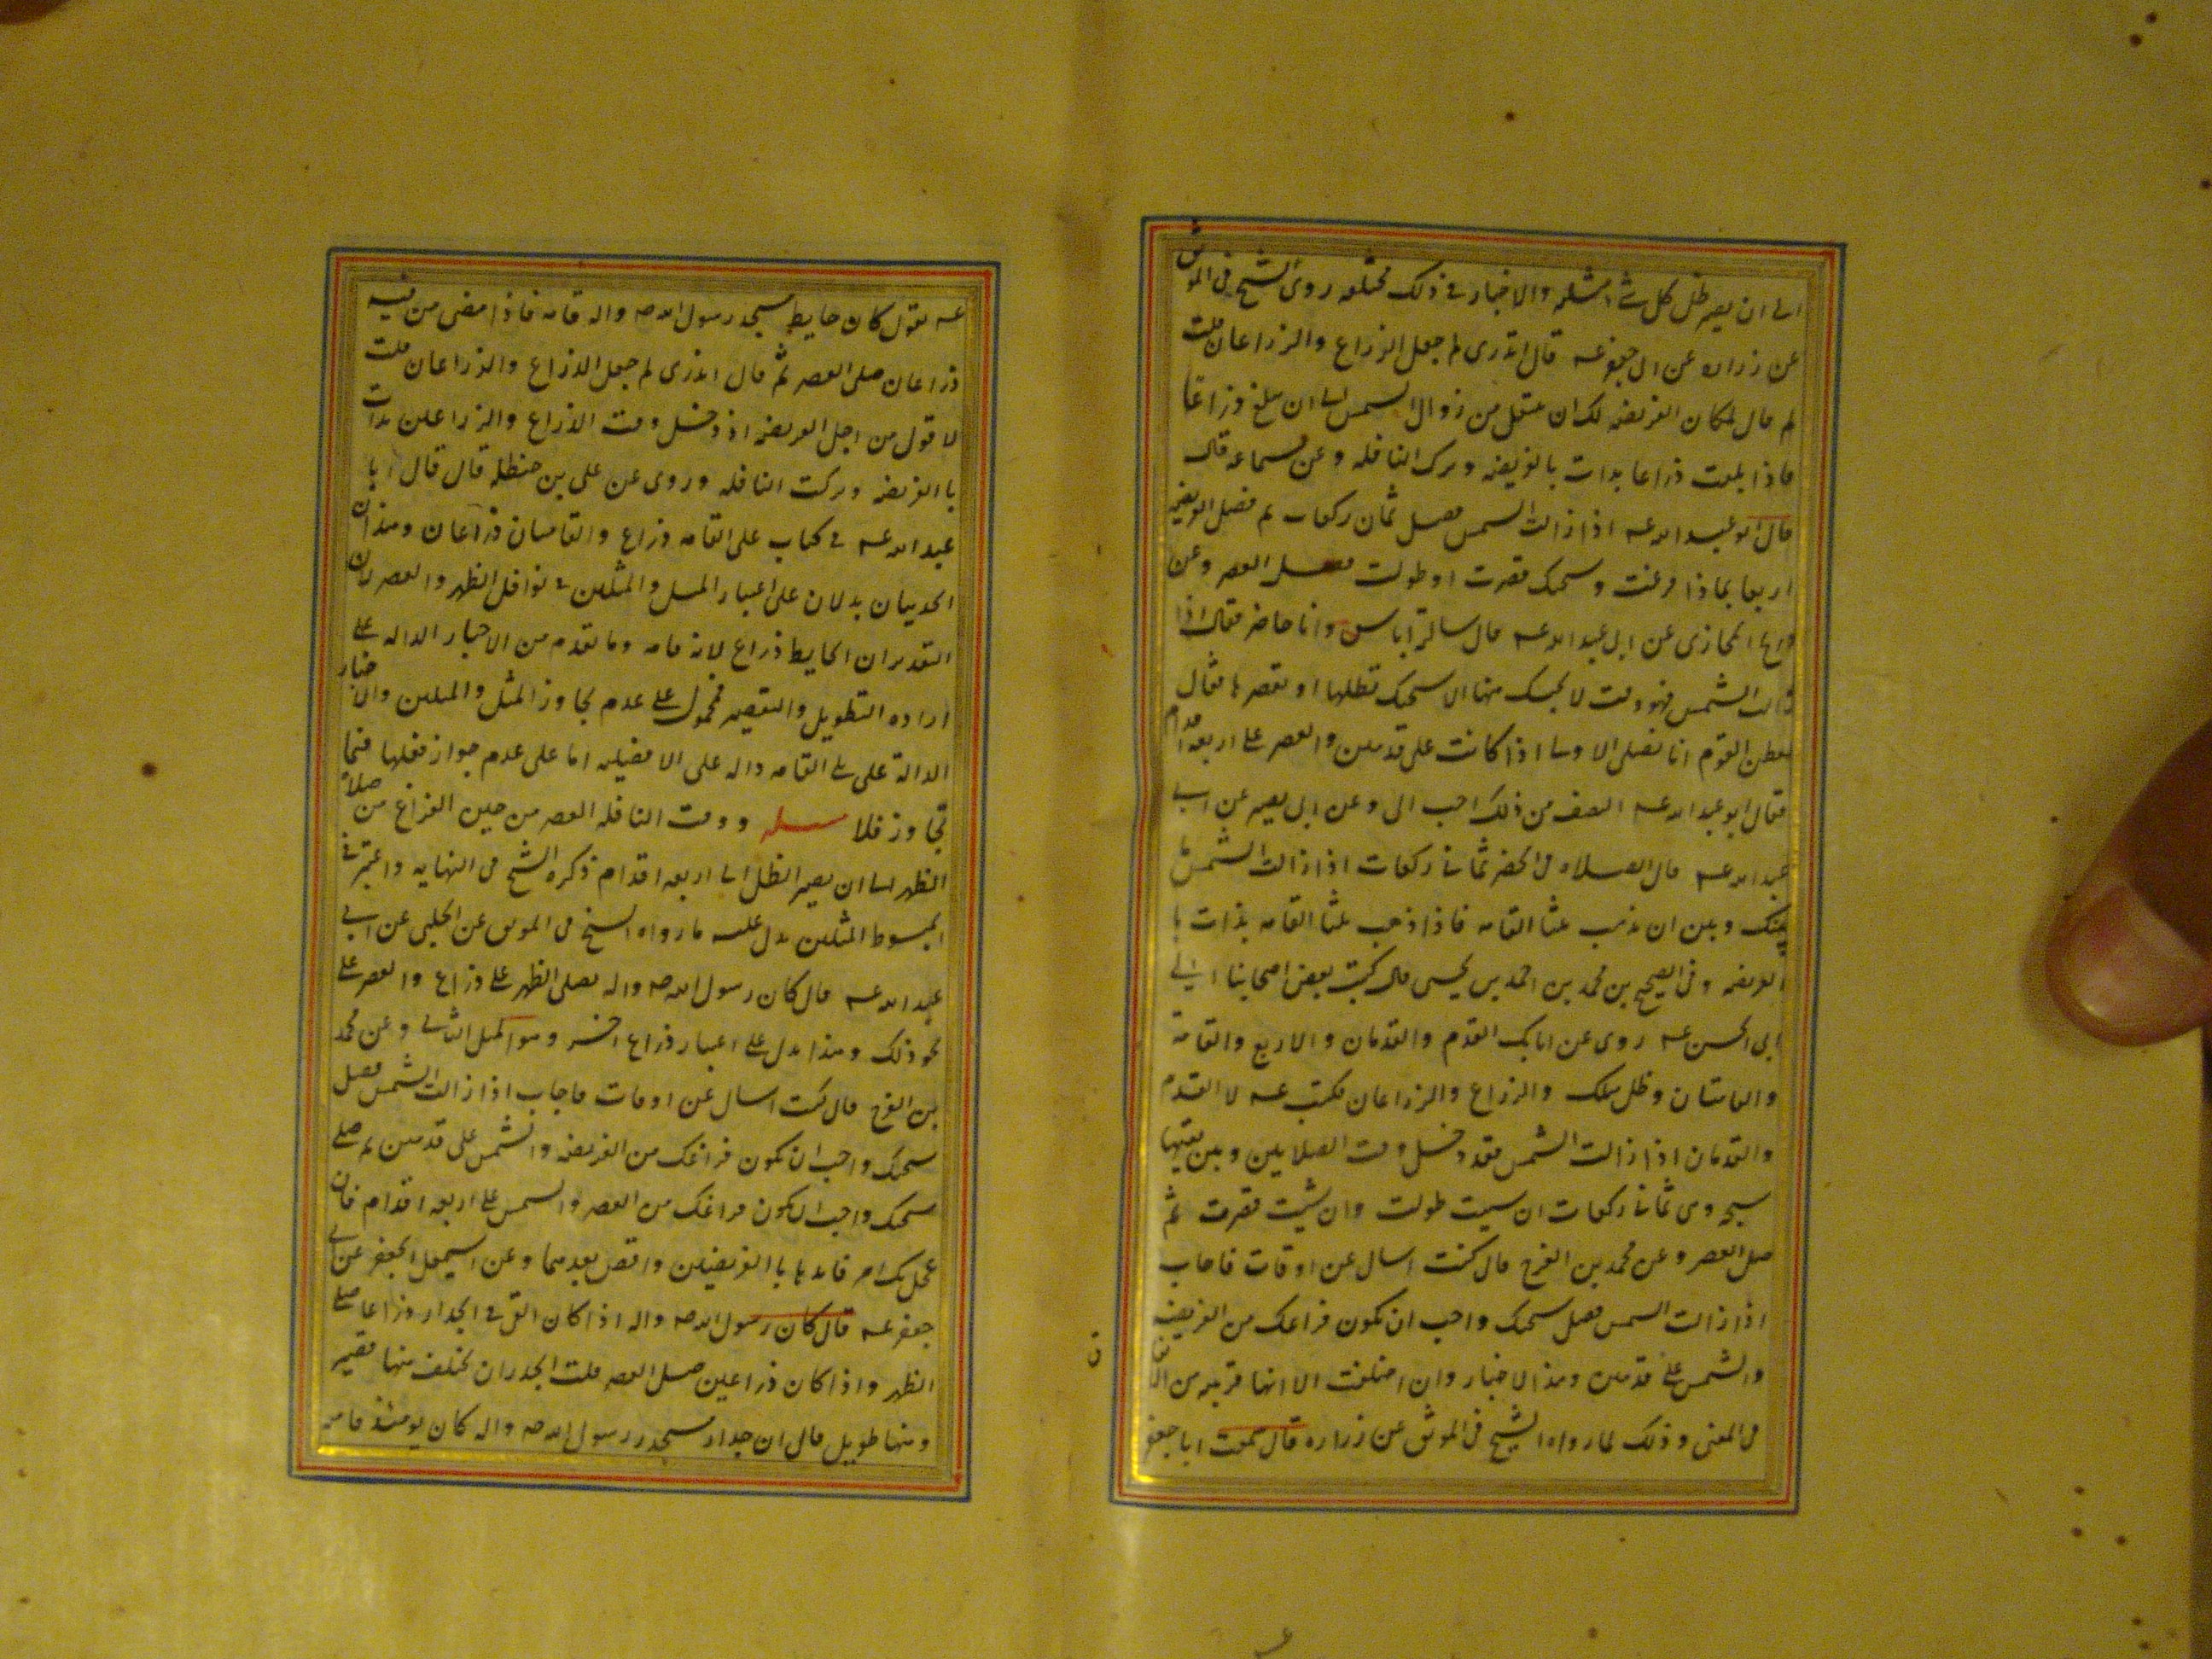 الى ان يصير ظل كل شئ مثله والاخبار فى ذلك مختلفه روى الشيخ فى الموثق
عن زراره عن ابى جعفر عه قال اتدرى لم جعل الذراع والذراعان قلت
لم قال لمكان الفريضه لك ان تتنفل من زوال الشمس الى ان يبلغ ذراعا
فاذا بلغت ذراعا بدات بالفريضه وتركت النافله وعن سماعه قال
قال ابو عبد الله عه اذا زالت الشمس فصل ثمان ركعات ثم فصل الفريضه
اربعا فاذا فرغت وسبحتك قصرت او طولت فصل العصر وعن
ذريح المحاربى عن ابى عبد الله عه قال سال اناس وانا حاضر فقال اذا
زالت الشمس فهو وقت لا يحبسك منها الا سبحتك تطلها او تقصرها فقال
بعض القوم انا نصلى الاولى اذا كانت على قدمين والعصر على اربعه اقدام
فقال ابو عبد الله عه النصف من ذلك احب الى وعن ابى بصير عن ابى
عبد الله عه قال الصلاه فى الحضر ثمانى ركعات اذا زالت الشمس ما
بينك وبين ان يذهب ثلثا القامه فاذا ذهب ثلثا القامه بدات با
الفريضه وفى الصحيح بن محمد بن احمد بن يحيى قال كتب بعض اصحابنا الى
ابى الحسن عه روى عن ابائك القدم والقدمان والاربع والقامة
والقامتان وظل مثلك والذراع والذراعان فكتب عه لا القدم
والقدمان اذا زالت الشمس فقد دخل وقت الصلاتين وبين يديها
سبحه وهى ثمانى ركعات ان شيت طولت وان شيت قصرت ثم
صل العصر وعن محمد بن الفرج قال كتبت اسال عن اوقات فاجاب
اذا زالت الشمس فصل سبحتك واحب ان يكون فراغك من الفريضه
والشمس على قدمين وهذه الاخبار وان اختلفت الا انها قريبه من
فى المعنى وذلك لما رواه الشيخ فى الموثق عن زراره قال سمعت ابا جعفر
عه يقول كان حايط مسجد رسول الله صه واله قامه فاذا مضى من فيه
ذراعان صلى العصر ثم قال اتدرى لم جعل الذراع والذراعان قلت
لا قول من اجل الفريضه اذ دخل وقت الذراع والذراعين بدات
با الفريضه وتركت النافله وروى عن على بن حنظله قال قال ابا
عبد الله عه فى كتاب على القامه ذراع والقامتان ذراعان وهذان
الحديثان يدلان على اعتبار المثل والمثلين فى نوافل الظهر والعصر لان
التقدير ان الحايط ذراع لانه قامه وما تقدم من الاخبار الداله على
اراده التطويل والتقصير فمحمول على عدم تجاوز المثل والمثلين والاخبار
الدالة على القامه داله على الافضيله اما على عدم جواز فعلها فيما
تجاوز فلا مسئله ووقت النافله العصر من حين الفراغ من صلاة
الظهر الى ان يصير الظل الى اربعه اقدام ذكره الشيخ فى النهايه واعتبر فى
المبسوط المثلين يدل عليه ما رواه الشيخ فى الموثق عن الحلبى عن ابى
عبد الله عه قال كان رسول الله صه واله يصلى الظهر على ذراع والعصر على
نحو ذلك وهذا يدل على اعتبار ذراع اخر وهو المثل الثانى وعن محمد
بن الفرج قال كتبت اسال عن اوقات فاجاب اذا زالت الشمس فصل
سبحتك واحب ان يكون فراغك من الفريضه والشمس على قدمين ثم صلى
سبحتك واحب ان يكون فراغك من العصر والشمس على اربعه اقدام فان
عجل بك امر فابدا با الفريضين واقض بعدهما وعن اسمعيل الجعفى عن ابى
جعفر عه قال كان رسول الله صه واله اذا كان الفئ فى الجدار ذراعا صلى
الظهر واذا كان ذراعين صلى العصر قلت الجدران تختلف منها قصير
ومنها طويل قال ان جدار مسجد رسول الله صه واله كان يومئذ قامه